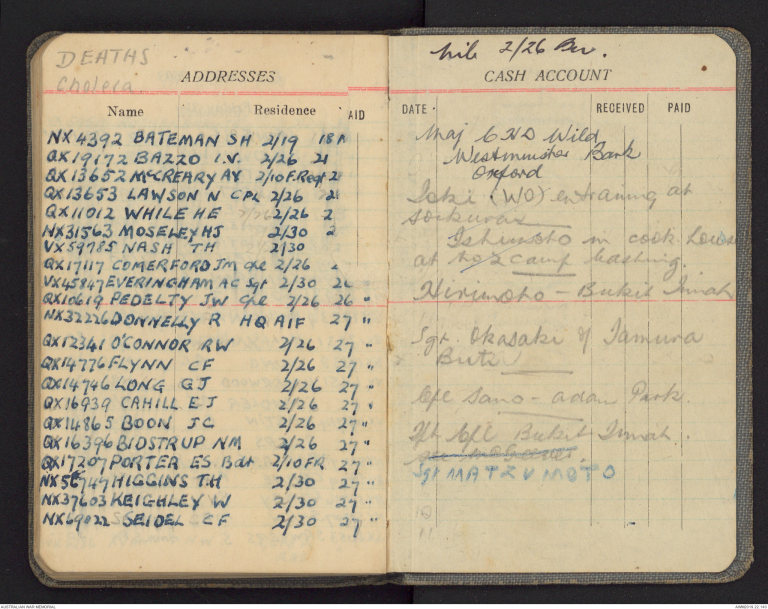 DEATHS
Cholera
ADDRESSES
Name Residence AID
NX4392 BATEMAN SH 2/19 18
QX19172 BAZZO I.V. 2/26 21
QX13652 McCREARY AV 2/10 F.Regt 2
QX13653 LAWSON N CPL 2/26 2
QX11012 WHILE HE 2/26 2
NX31563 MOSELEY HJ 2/30 2
VX59785 NASH TH 2/30
QX17117 COMERFORD JM Cpl 2/26
VX45847 EVERINGHAM AC Sgt 2/30 26
QX10619 PEDELTY JW Cpl 2/26 26 "
NX32226 DONNELLY R HQ AIF 27 "
QX12341 O'CONNOR RW 2/26 27 "
QX14776 FLYNN CF 2/26 27 "
QX14746 LONG GJ 2/26 27 "
QX16939 CAHILL EJ 2/26 27 "
QX14865 BOON JC 2/26 27 "
QX16396 BIDSTRUP NM 2/26 27 "
QX17207 PORTER ES. Bdr 2/10 FR 27 "
NX56749 HIGGINS TH 2/30 27 "
NX37603 KEIGHLEY W 2/30 27 "
NX69022 SEIDEL CF 2/30 27 "
2/26 Bn.
CASH ACCOUNT
DATE RECEIVED PAID
Maj C.H.D Wild
Westminster Bank
Oxford
(WO) entraining at
Ishimoto in cook house
at No 2 Camp bashing.
Hirimoto - Bukit Timah
Sgt Okasaki & Tamura
Cpl Sano - adam Park
Cpl Bukit Timah.
Sgt MATZUMOTO
10
11
AUSTRALIAN WAR MEMORIAL